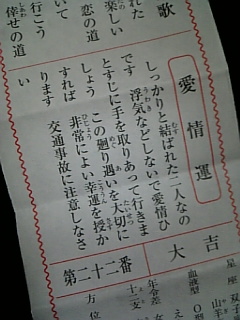 歌
れた
楽しい
恋の道
いて
行こう
倖せの道
愛情運
しっかりと結ばれた二人なの
です 浮気などしないで愛情ひ
とすじに手を取りあって行きま
しょう この廻り遇いを大切に
すれば 非常によい幸運を授か
ります 交通事故に注意しなさ
い
大吉
第二十二番
星座 双子
山羊
血液型 O型
年令差
十二支
方位